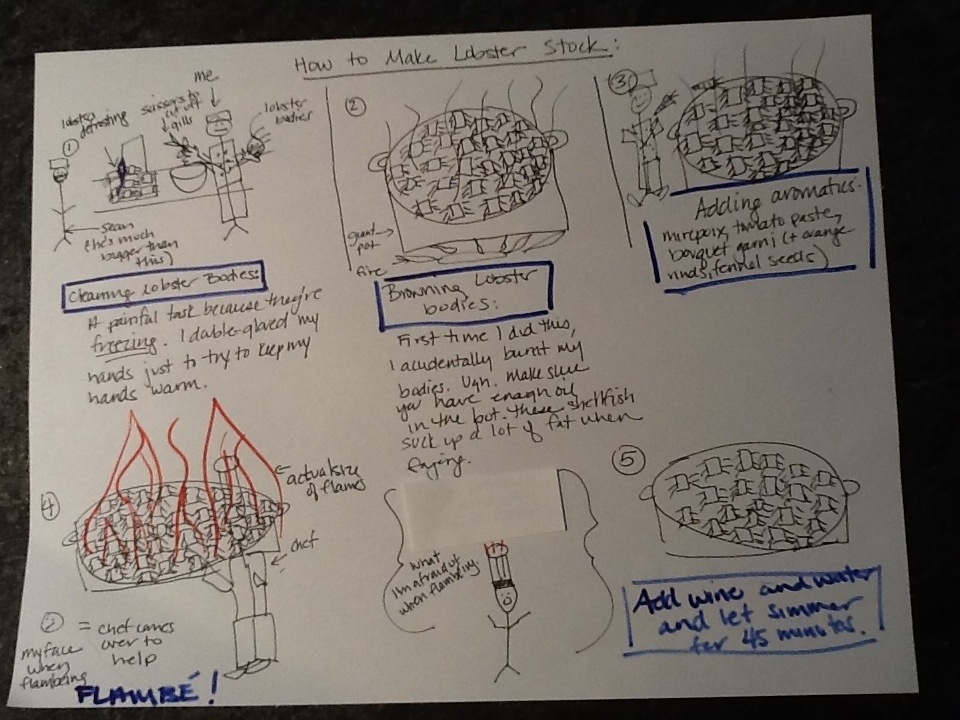 How to Make Lobster Stock:
①
lobster
defrosting
scissors to
cut off
gills
me
lobster
bodies
Sean
(he's much
bigger than
this)
Cleaning Lobster Bodies:
A painful task because they're
freezing. I double-gloved my
hands just to try to keep my
hands warm.
②
giant
pot
fire
Browning Lobster
bodies:
First time I did this,
I accidentally burnt my
bodies. Ugh. Make sure
you have enough oil
in the pot. These shellfish
suck up a lot of fat when
frying.
③
Adding aromatics:
mirepoix, tomato paste,
bouquet garni (+ orange
rinds, fennel seeds)
④
actual size
of flames
chef
my face
when
flambeing
= chef comes
over to
help
FLAMBÉ!
what
I'm afraid of
when flambeing
⑤
Add wine and water
and let simmer
for 45 minutes.